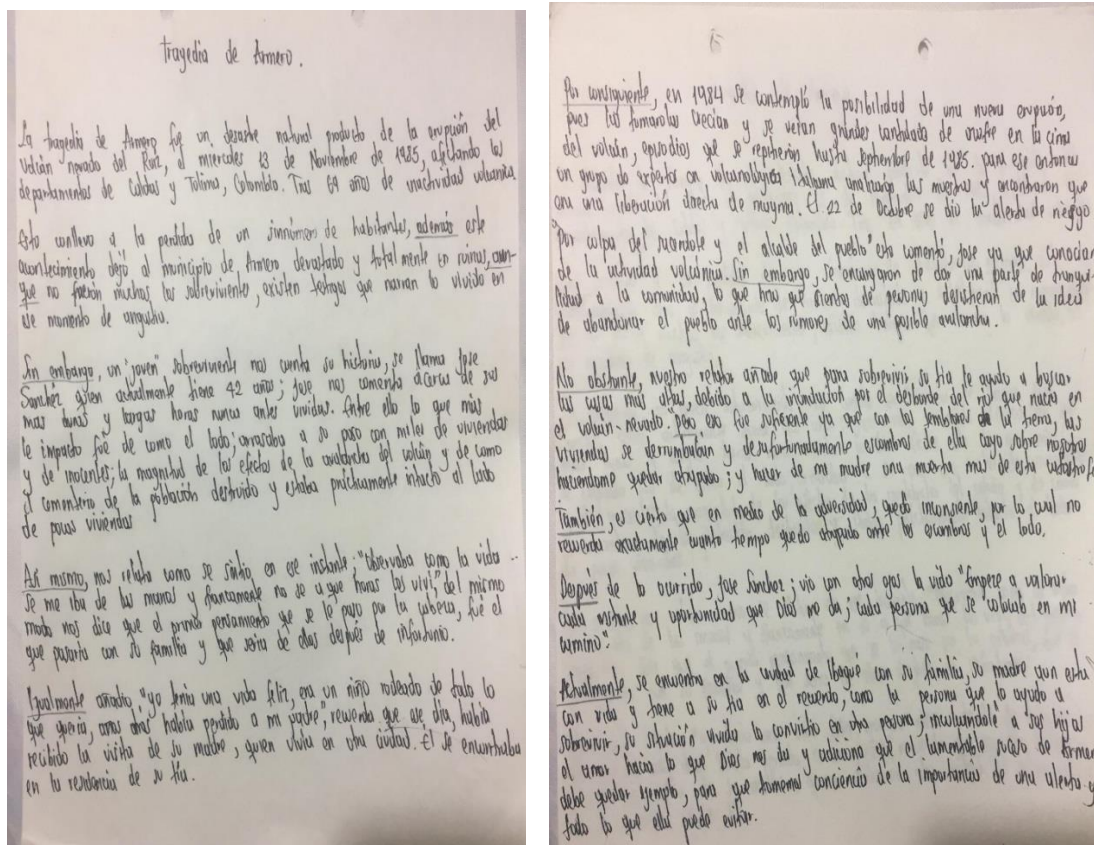 tragedia de Armero.
La tragedia de Armero fue un desastre natural producto de la erupción del
Volcán nevado del Ruiz, el miercoles 13 de Noviembre de 1985, afectando los
departamentos de Caldas y Tolima, Colombia. Tras 69 años de inactividad volcanica.
Esto conllevo a la perdida de un sinnúmero de habitantes, además este
acontecimiento dejó al municipio de Armero devastado y totalmente en ruinas, aun-
que no fueron muchos los sobreviviente, existen testigos que narran lo vivido en
ese momento de angustia.
Sin embargo, un "joven" sobreviviente nos cuenta su historia, se llama Jose
Sanchez quien actualmente tiene 42 años; Jose nos comenta acerca de sus
mas duras y largas horas nunca antes vividas. Entre ello lo que más
le impacto fué de como el lodo; arrasaba a su paso con miles de viviendas
y de inocentes; la magnitud de los efectos de la avalancha del volcán y de como
el cementerio de la población destruido y estaba prácticamente intacto al lado
de pocas viviendas
Así mismo, nos relata como se sintio en ese instante; "Observaba como la vida
se me iba de las manos y francamente no se a que horas los viví", del mismo
modo nos dice que el primer pensamiento que se le paso por la cabeza, fué el
que pasaria con su familia y que seria de ellos después de infortunio.
Igualmente añadio, "yo tenia una vida feliz, era un niño rodeado de todo lo
que queria, años atras habia perdido a mi padre", recuerda que ese dia, habia
recibido la visita de su madre, quien vivia en otra ciudad. El se encontraba
en la residencia de su tía.
Por consiguiente, en 1984 se contempló la posibilidad de una nueva erupción,
pues las fumarolas crecian y se veian grandes cantidades de azufre en la cima
del volcán, episodios que se repitieron hasta septiembre de 1985. para ese entonces
un grupo de expertos en volcanológica Italiana analizaron las muestras y encontraron que
era una liberación directa de magma. El 22 de Octubre se dio la alerta de riesgo
"Por culpa del sacerdote y el alcalde del pueblo" esto comentó, Jose ya que conocian
de la actividad volcánica. Sin embargo, se encargaron de dar una parte de tranqui-
lidad a la comunidad, lo que hizo que cientos de personas desistieran de la idea
de abandonar el pueblo ante los rumores de una posible avalancha.
No obstante, nuestro relator añade que para sobrevivir, su tia le ayudo a buscar
las casas más altas, debido a la inundacion por el desborde del rio que nacia en
el volcán-nevado. "pero eso fue suficiente ya que con los temblores la tierra, las
viviendas se derrumbaban y desafortunadamente escombros de ella cayo sobre nosotros
haciendome quedar atrapado; y hacer de mi madre una muerta mas de esta
También, es cierto que en medio de la adversidad, quedo inconsiente, por lo cual no
recuerda exactamente cuanto tiempo quedo atrapado ante los escombros y el lodo.
Después de lo ocurrido, Jose Sanchez; vio con otros ojos la vida "Empeze a valorar
cada instante y oportunidad que Dios no da; cada persona que se colocab en mi
camino".
Actualmente, se encuentra en la ciudad de Ibagué con su familia, su madre aun esta
con vida y tiene a su tia en el recuerdo, como la persona que lo ayudo a
sobrevivir, su situación vivida lo convirtio en otra persona; inculcandole a sus hijos
el amor hacia lo que Dios nos da y adiciona que el lamentable suceso de Armero
debe quedar ejemplo, para que tomemos conciencia de la importancia de una alerta y
todo lo que ella puede evitar.